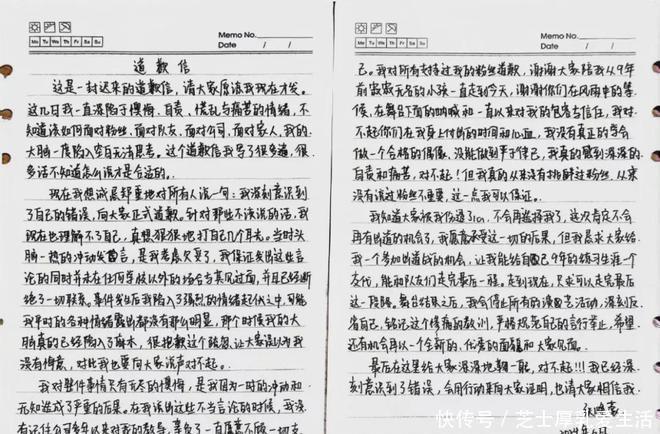 Memo No.
Mo Tu We Th Fr Sa Su
Date / /
道歉信
这是一封迟来的道歉信，请大家原谅我现在才发。
这几日我一直深陷于懊悔、自责、慌乱与痛苦的情绪，不
知道该如何面对粉丝，面对队友，面对公司，面对家人，我的
大脑一度陷入空白无法思考。这个道歉信我写了很多遍，很
多话不知道怎么说才是合适的。
现在我想诚恳郑重地对所有人说一句：我深刻意识到
了自己的错误，向大家正式道歉。针对那些不该说的话，我
现在也理解不了自己，真想狠狠地打自己几个耳光。当时头
脑一热的冲动发言，是我考虑欠妥了，我保证发出这些言
论的同时并未在任何学校以外的场合与其见过面，并且已经断
绝了一切联系。事件发生后我陷入了强烈的情绪起伏之中，可能
我平时的各种情绪露出都没有那么明显，那个时候我的大
脑真的已经陷入了麻木，很抱歉这个状态，让大家误以为我
没有悔意，对此我也要向大家说声对不起。
我对整件事情只有无尽的懊悔，是我因为一时的冲动和
无知造成了严重的后果。在我说出这些不当言论的时候，我没
有记住公司多年以来对我的教导，辜负了一直愿意不顾一切支
Memo No.
Mo Tu We Th Fr Sa Su
Date / /
己。我对所有支持过我的粉丝道歉，谢谢大家陪我从9年
前寂寂无名的小孩一直走到今天，谢谢你们在风雨中的等
候，在舞台下面的呐喊和一直以来对我的包容与信任，我对
不起你们在我身上付出的时间和心血，我没有真正的学会
做一个合格的偶像，没能做到严于律己，我真的感到深深的
自责和痛苦，对不起！但我真的从来没有挑衅过粉丝，从来
没有说过粉丝不重要，这一点我可以保证。
我知道大家很
不会再选择我了，这次肯定不会
再有出道的机会了，我愿意承受这一切的后果，但我恳求大家给
我一个参加出道战的机会，让我能给自己9年的练习生涯一个
交代，能和队友们走完最后一程。走到现在，只求可以走完最后
这一段路。舞台结束之后，我会停止所有的演艺活动，深刻反
省自己，铭记这个惨痛的教训，严格规范自己的言行举止，希望
还有机会再以一个全新的、优秀的面貌和大家见面。
最后在这里给大家深深地鞠一躬，对不起!!! 我已经深
刻意识到了错误，会用行动来向大家证明，也请大家相信我。
快传号／芝士厚乳爱生活